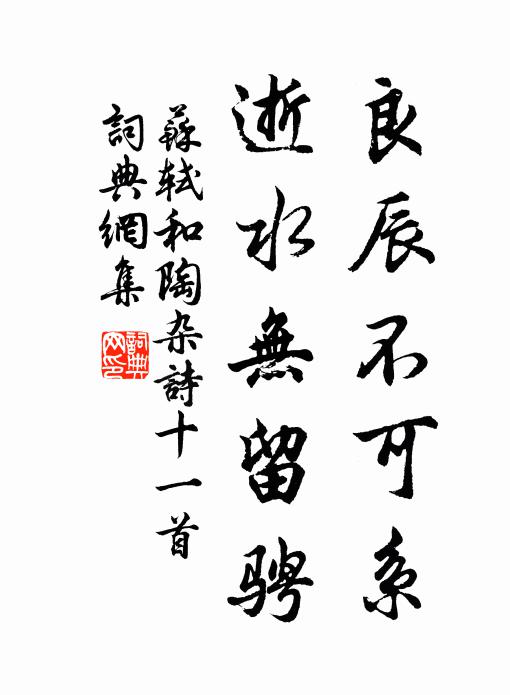 良辰不可系
逝水無留騁
蘇軾和陶杂詩十一首
詞典網集
詞典
网印